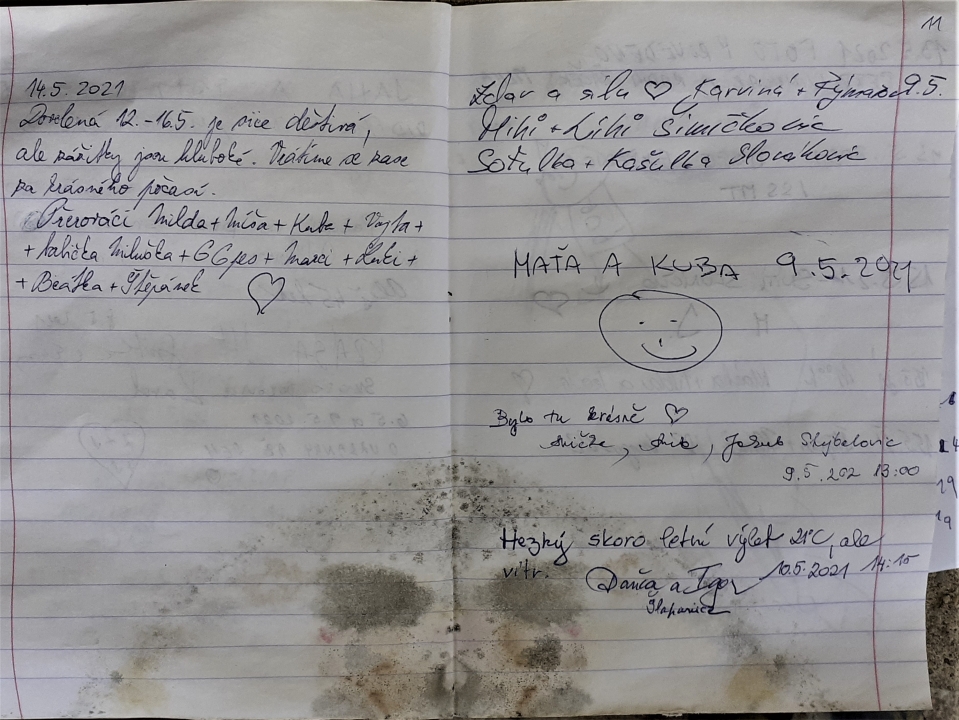 14.5. 2021
Dovolená 12.-16.5. je sice deštivá,
ale zážitky jsou hluboké. Vrátíme se zase
za krásného počasí.
Přerováci Milda + Míša + Kuba + Vojta +
+ babička Miluška + GG pes + Marci + Luki +
+ Beátka + Štěpánek
11
Zdar a sílu ♡ Karviná + Rýmařov 9.5.
Miki + Liki Šimíčkovic
Soťulka + Kaťulka Slovákovic
MAŤA A KUBA 9.5.2021
Bylo tu krásně ♡
Jakub
9.5.202 13:00
Hezký skoro letní výlet 21°C, ale
vítr.
Danča a Igor 10.5.2021 14:15
Šlapanice